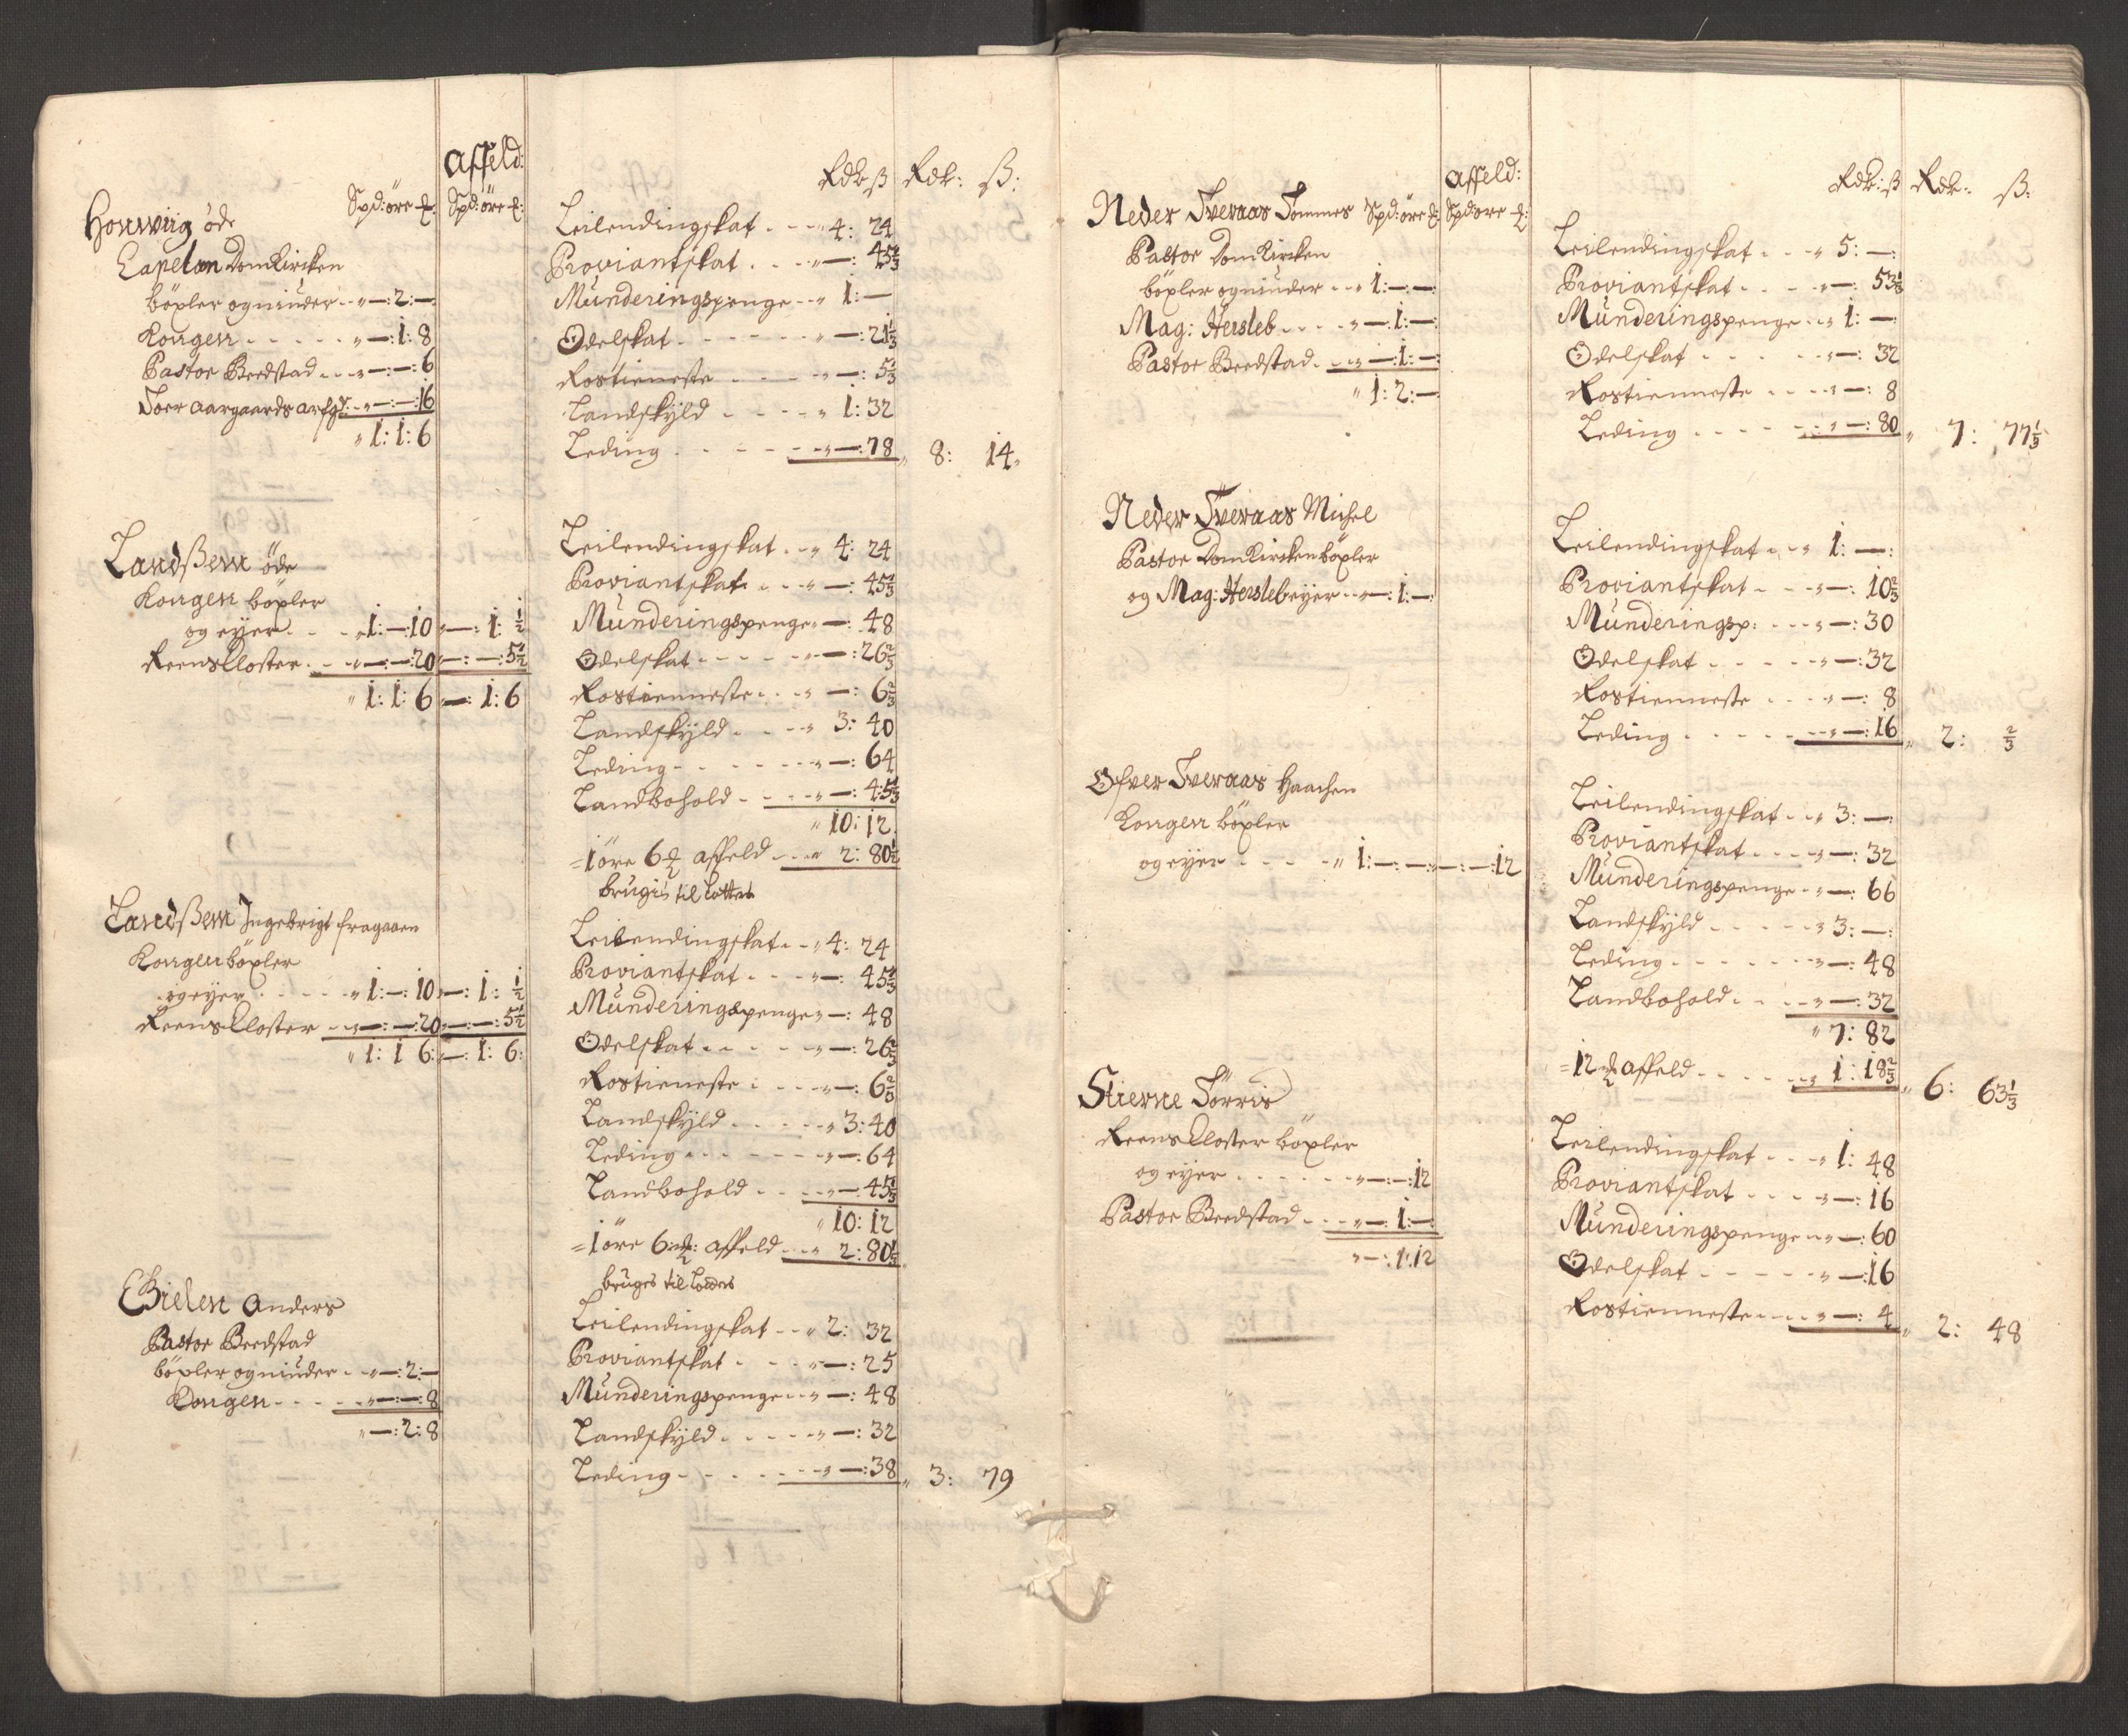 Affeld:
Rdr ß Rdr: ß:
Honnvig öde Spd: öre £: Spd: öre £:
Capelan DomKircken
böxler og niuder - - „ — : 2: —
Kongen - - - - - „ — : 1: 8
Pastor Beedstad - - - „ — : — : 6
Soer Aargaards arfg: - „ — : — : 16
„ 1: 1: 6
Leilendingskat - - - „ 4: 24
Proviantskat - - - - „ — : 45 1/3
Munderingspenge - - „ 1: —
Odelskat - - - - - - „ — : 21 1/3
Rostieneste - - - - „ — : 5 1/3
Landskyld - - - - - „ 1: 32
Leding - - - - - - „ — : 78 „ 8: 14„
Landßem öde
Kongen böxler
og eyer - - - „ 1: — : 10 „ — : 1: 1/2
Reens Closter - - „ — : — : 20 „ — : — : 5 1/2
„ 1: 1: 6 „ — : 1: 6
Leilendingskat - - „ 4: 24
Proviantskat - - - „ — : 45 1/3
Munderingspenge „ — : 48
Odelskat - - - - - „ — : 26 2/3
Rostienneste - - - „ — : 6 2/3
Landskyld - - - - „ 3: 40
Leding - - - - - - „ — : 64
Landbohold - - - - „ — : 45 1/3
„ 10: 12
= 1 öre 6 £ affeld - - - „ 2: 80 1/2
brugis til Lottes
Landßem Ingebrigt fragaaen
Kongen böxler
og eyer - - - - - „ 1: — : 10 „ — : 1: 1/2
Reens Closter - - „ — : — : 20 „ — : — : 5 1/2
„ 1: 1 6: „ — : 1: 6:
Leilendingskat - - „ 4: 24
Proviantskat - - - - „ — : 45 1/3
Munderingspenge „ — : 48
Odelskat - - - - - „ — : 26 2/3
Rostieneste - - - - „ — : 6 2/3
Landskyld - - - - - „ 3: 40
Leding - - - - - - - „ — : 64
Landbohold - - - - „ — : 45 1/3
„ 10: 12
= 1 öre 6 £: affeld - - „ 2: 80 1/2
bruges til Loddes
Gielen Anders
Pastor Beedstad
böxler og niuder - - „ — : 2: —
Kongen - - - - - „ — : — : 8
„ — : 2: 8
Leilendingskat - - „ 2: 32
Proviantskat - - - - „ — : 25
Munderingspenge - - „ — : 48
Landskyld - - - - - „ — : 32
Leding - - - - - - - „ — : 38 „ 3: 79
Affeld:
Rdr: ß Rdr: ß:
Neder Tveraas Tommes Spd: öre £: Spd: öre £:
Pastor DomKircken
böxler og niuder - - „ 1: — : —
Mag: Hersleb - - - - „ — : 1: —
Pastor Beedstad - - „ — : 1: —
„ 1: 2: —
Leilendingskat - - - „ 5: —
Proviantskat - - - - „ — : 53 1/3
Munderingspenge - - „ 1: —
Odelskat - - - - - - „ — : 32
Rostienneste - - - - „ — : 8
Leding - - - - - - „ — : 80 „ 7: 77 1/3
Neder Tveraas Michel
Pastor DomKircken böxler
og Mag: Hersleb eyer - - „ — : 1: —
Leilendingskat - - „ 1: —
Proviantskat - - - - „ — : 10 2/3
Munderingsp: - - - „ — : 30
Odelskat - - - - - „ — : 32
Rostienneste - - - - „ — : 8
Leding - - - - - - „ — : 16 „ 2: 2/3
Ofver Tveraas Haachen
Kongen böxler
og eyer - - - - - „ 1: — : — „ — : — : 12
Leilendingskat - - „ 3: —
Proviantskat - - - - „ — : 32
Munderingspenge - - „ — : 66
Landskyld - - - - - „ 3: —
Leding - - - - - - - „ — : 48
Landbohold - - - - „ — : 32
„ 7: 82
= 12 £ affeld - - - - - „ 1: 18 2/3 „ 6: 63 1/3
Stierne Törris
Reens Closter böxler
og eyer - - - - - - „ — : — : 12
Pastor Beedstad - - - „ — : 1: —
„ — : 1: 12
Leilendingskat - - - „ 1: 48
Proviantskat - - - - „ — : 16
Munderingspenge - - „ — : 60
Odelskat - - - - - „ — : 16
Rostienneste - - - - „ — : 4 „ 2: 48